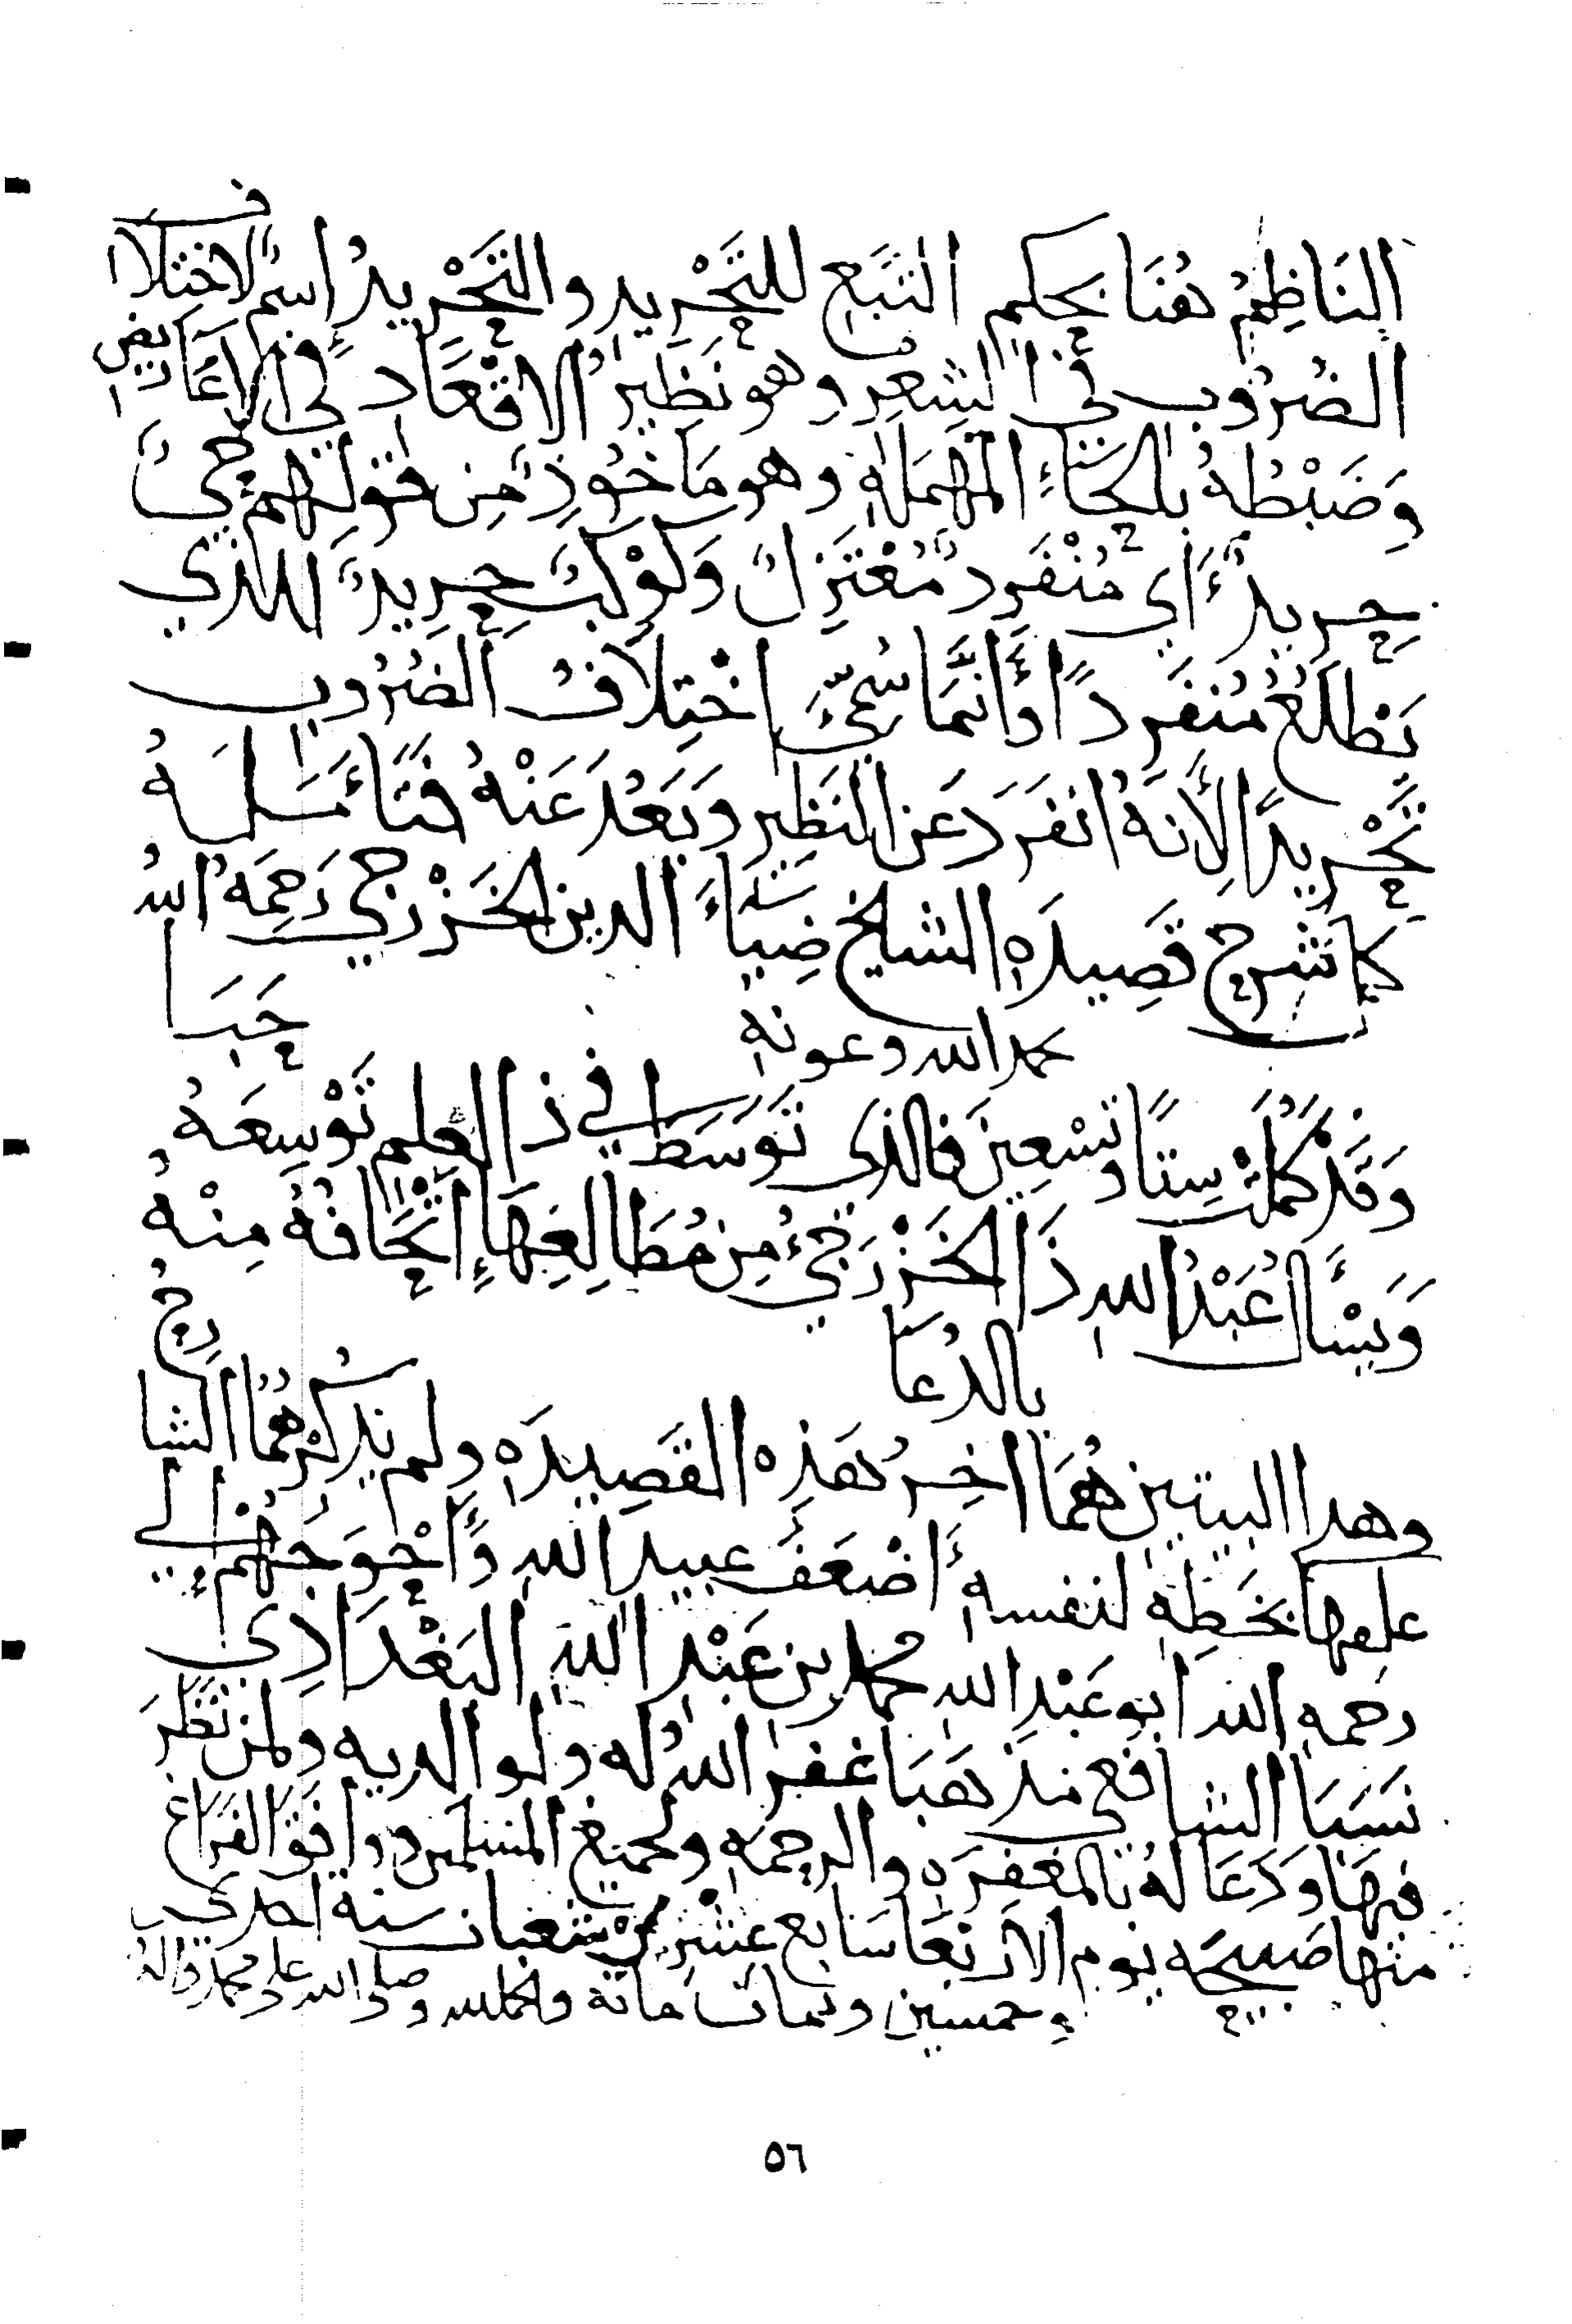 النَاظِمُ هُنَا بحكمِ التَبَع للتَحْرِيدِ والتَحْرِيدُ اسمٌ لاختلاف
الضُرُوب في الشعرِ وهو نَظيرُ الاقْعَاد في الاعَاريض
وَضَبْطُهُ بالحَاءِ المهمَلةِ وهو مَاخُوذٌ مِن قولهم حيٌّ
حِريدٌ اي مُنْفَردٌ مُعْتَزِلٌ وَكَوْكَبٌ حِرِيدٌ الذي
يَطلعُ مُنفَردًا وَأنمَا سُمِّيَ اختِلافُ الضُرُوب
تَحْرِيدًا لأنهُ انفَرَدَ عَن النَظِير وَبَعُدَ عَنْهُ فتَأمَلهُ
كامل شرح قصِيدَةِ الشيخ ضِيَاءَ الدين الخَزْرَجي رَحِمَهُ اللهُ
بحمد الله وعونهِ
وَقَدْ كَمُلَتْ سِتًا وتسْعِينَ فالذي تَوَسَطَ في ذا العِلم تَوْسِعَهُ حَبَا
وَيَسْأَلُ عَبْدُ اللهِ ذَا الخَزْرَجيُ مِن مُطَالِعِهَا إتْحَافُهُ مِنْهُ
بالدُعَا
وهدا البيتين هُمَا اخِرُ هَذِه القَصِيدَةِ ولم يَذكُرْهُمَا الشارحُ
علقها بخَطِهِ لنفسهِ أضْعَفُ عبيد اللهِ وَأَحْوَجُهُم الي
رَحمهِ الله ابو عَبْدِ اللهِ محمد بن عَبْدِ اللهِ البَغْدَادِي
نَسَبَا الشافعي مَذهَبَا غفَر اللهُ له ولوالديهِ ولمن نَظَرَ
فيهَا وَدَعَا لهُ بالمغفِرَهِ والرحمهِ ولجميع المسلمين ووافَقَ الفَرَاغ
منها صَبيحَة يَوم الارْبعَا سَابع عشْر مِنْ شعْبان سنة احدى
وخمسين وثمان مائة والحمد لله وصلى الله على محمد واله
٥٦